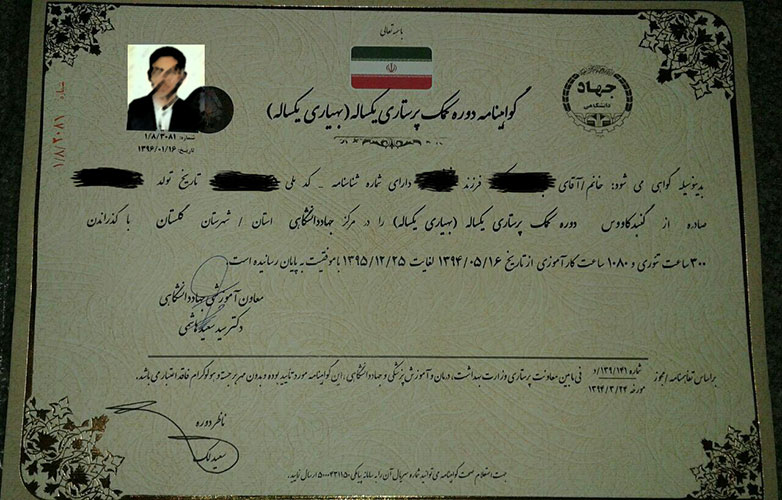 باسمه تعالی
جهاد
دانشگاهی
گواهینامه دوره کمک پرستاری یکساله (بهیاری یکساله)
شماره: ۱/۸/۳۰۸۱
تاریخ: ۱۳۹۶/۰۱/۱۶
شماره ۱/۸/۳۰۸۱
بدینوسیله گواهی می شود: خانم/آقای فرزند دارای شماره شناسنامه - کد ملی تاریخ تولد
صادره از گنبدکاووس دوره کمک پرستاری یکساله (بهیاری یکساله) را در مرکز جهاددانشگاهی استان / شهرستان گلستان با گذراندن
۳۰۰ ساعت تئوری و ۱۰۸۰ ساعت کارآموزی از تاریخ ۱۳۹۴/۰۵/۱۶ لغایت ۱۳۹۵/۱۲/۲۵ با موفقیت به پایان رسانیده است.
معاون آموزشی جهاددانشگاهی
دکتر سید سعید هاشمی
براساس تفاهمنامه / مجوز شماره ۱۳۹/۱۴۱/د مورخه ۱۳۹۴/۳/۲۴ فی مابین معاونت پرستاری وزارت بهداشت، درمان و آموزش پزشکی و جهاددانشگاهی، این گواهینامه مورد تایید بوده و بدون مهر برجسته و هولوگرام فاقد اعتبار می باشد.
ناظر دوره
سعید لک
جهت استعلام صحت گواهینامه می توانید شماره سریال آن را به سامانه پیامکی ۵۰۰۰۴۳۱۱۵۰ ارسال نمایید.